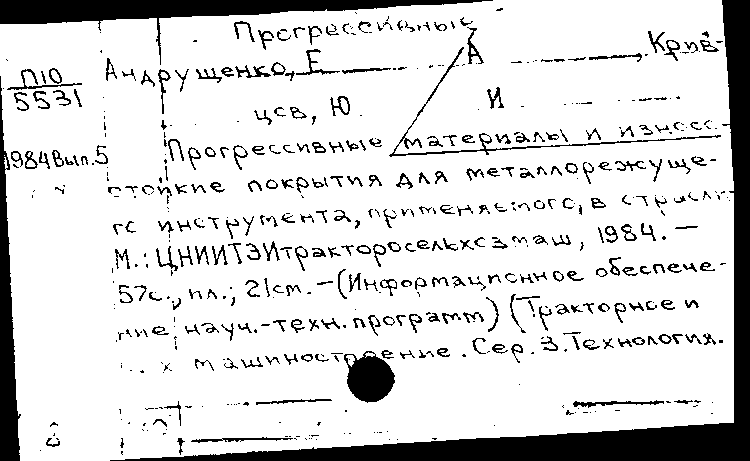 Прогрессивные
П10
5531
Андрущенко, Е А , Крив-
цов, Ю И
1984 Вып.5
Прогрессивные материалы и износо-
стойкие покрытия для металлорежуще-
го инструмента, применяемого, в
М.: ЦНИИТЭИтракторосельхозмаш, 1984. —
57с., ил.; 21см. — (Информационное обеспече-
ние науч.-техн. программ) (Тракторное и
с. х машиностроение. Сер. 3. Технология.